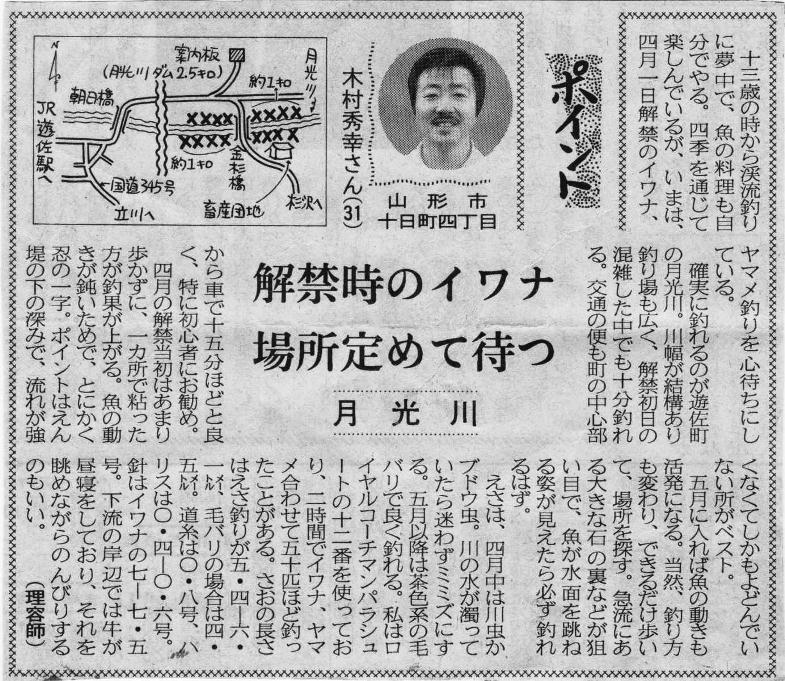 ポイント
十三歳の時から渓流釣り
に夢中で、魚の料理も自
分でやる。四季を通じて
楽しんでいるが、いまは、
四月一日解禁のイワナ、
木村秀幸さん(31)
山形市
十日町四丁目
N
案内板
(月光川ダム2.5キロ)
月光川
約1キロ
朝日橋
JR遊佐駅へ
約1キロ
金杉橋
国道345号
立川へ
畜産団地
杉沢へ
解禁時のイワナ
場所定めて待つ
月光川
ヤマメ釣りを心待ちにし
ている。
確実に釣れるのが遊佐町
の月光川。川幅が結構あり
釣り場も広く、解禁初日の
混雑した中でも十分釣れ
る。交通の便も町の中心部
から車で十五分ほどと良
く、特に初心者にお勧め。
四月の解禁当初はあまり
歩かずに、一カ所で粘った
方が釣果が上がる。魚の動
きが鈍いためで、とにかく
忍の一字。ポイントはえん
堤の下の深みで、流れが強
くなくてしかもよどんでい
ない所がベスト。
五月に入れば魚の動きも
活発になる。当然、釣り方
も変わり、できるだけ歩い
て、場所を探す。急流にあ
る大きな石の裏などが狙
い目で、魚が水面を跳ね
る姿が見えたら必ず釣れ
るはず。
えさは、四月中は川虫か
ブドウ虫。川の水が濁って
いたら迷わずミミズにす
る。五月以降は茶色系の毛
バリで良く釣れる。私はロ
イヤルコーチマンパラシュ
ートの十二番を使ってお
り、二時間でイワナ、ヤマ
メ合わせて五十匹ほど釣っ
たことがある。さおの長さ
はえさ釣りが五・四―六・
一㍍、毛バリの場合は四・
五㍍。道糸は〇・八号、ハ
リスは〇・四―〇・六号。
針はイワナの七―七・五
号。下流の岸辺では牛が
昼寝をしており、それを
眺めながらのんびりする
のもいい。
(理容師)